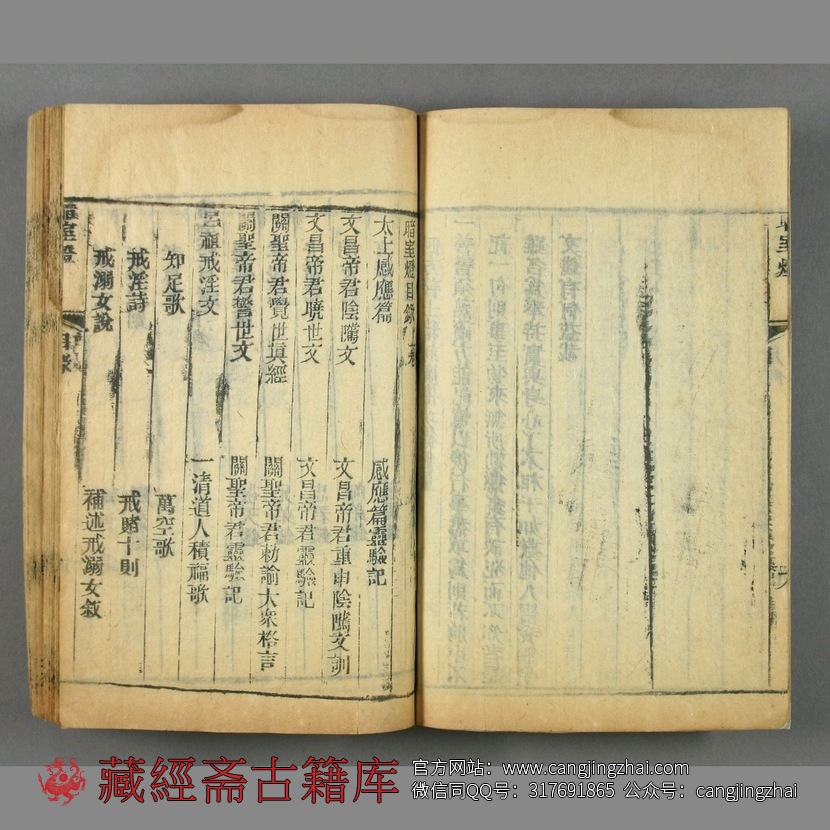 暗室燈目錄 上卷
太上感應篇 感應篇靈驗記
文昌帝君陰隲文 文昌帝君重申陰隲文訓
文昌帝君曉世文 文昌帝君靈驗記
關聖帝君覺世真經 關聖帝君勅諭大衆格言
關聖帝君警世文 關聖帝君靈驗記
呂祖戒淫文 一清道人積福歌
知足歌 萬空歌
戒淫詩 戒賭十則
戒溺女說 補述戒溺女敘
暗室燈
目錄
藏經斋古籍库
官方网站：www.cangjingzhai.com
微信同QQ号：317691865 公众号：cangjingzhai